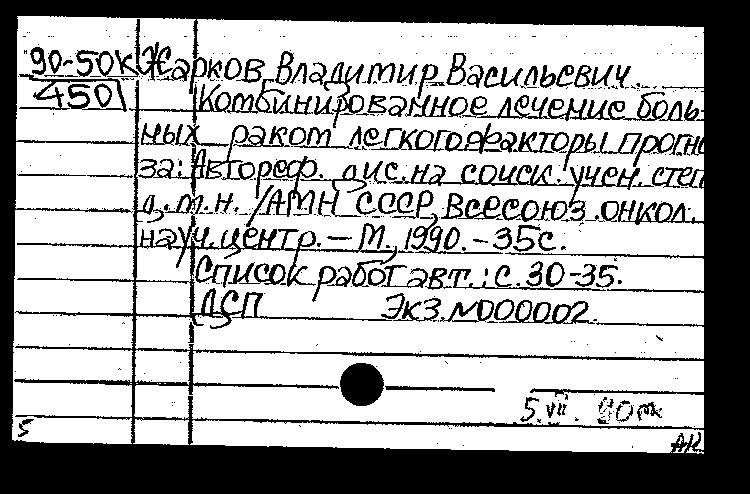 90-50к Жарков, Владимир Васильевич.
4501 Комбинированное лечение боль-
ных раком легкого: факторы прогно
за: Автореф. дис. на соиск. учен. степ
д.м.н. /АМН СССР, Всесоюз. онкол.
науч. центр. – М., 1990. – 35с.
Список работ авт.: с. 30-35.
ДСП Экз. №000002.
5.VII. 90
5
АК